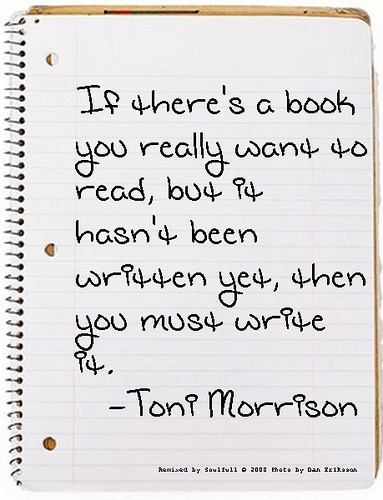 If there's a book
you really want to
read, but it
hasn't been
written yet, then
you must write
it.
-Toni Morrison
Remixed by Soulfull © 2008 Photo by Dan Eriksson